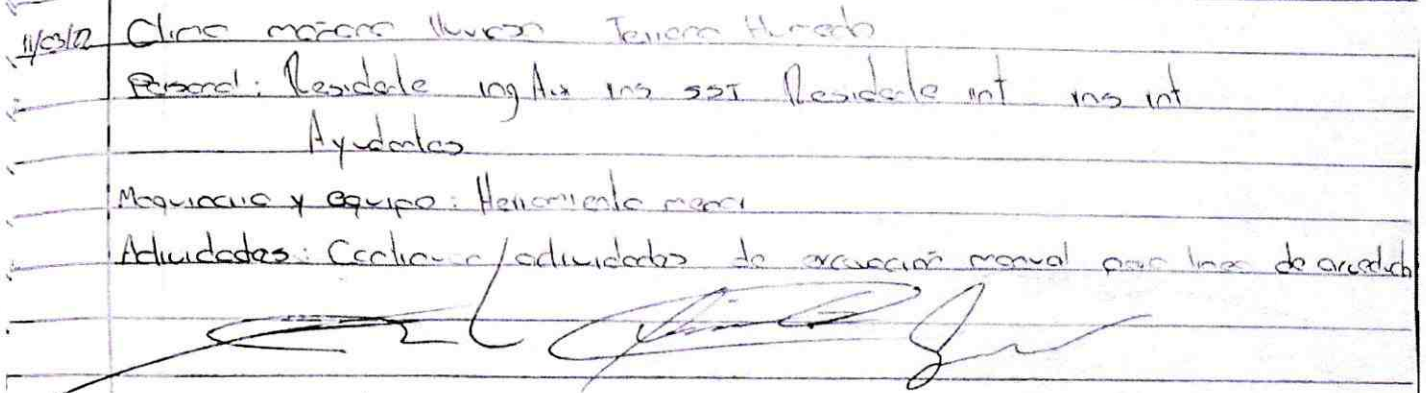 11/03/22 Clima mañana lluviosa Terreno Humedo
Personal: Residente ing Aux ins SST Residente int ins int
Ayudantes
Maquinaria y equipo: Herramienta menor
Actividades: Continua actividades de excavación manual para linea de acueducto